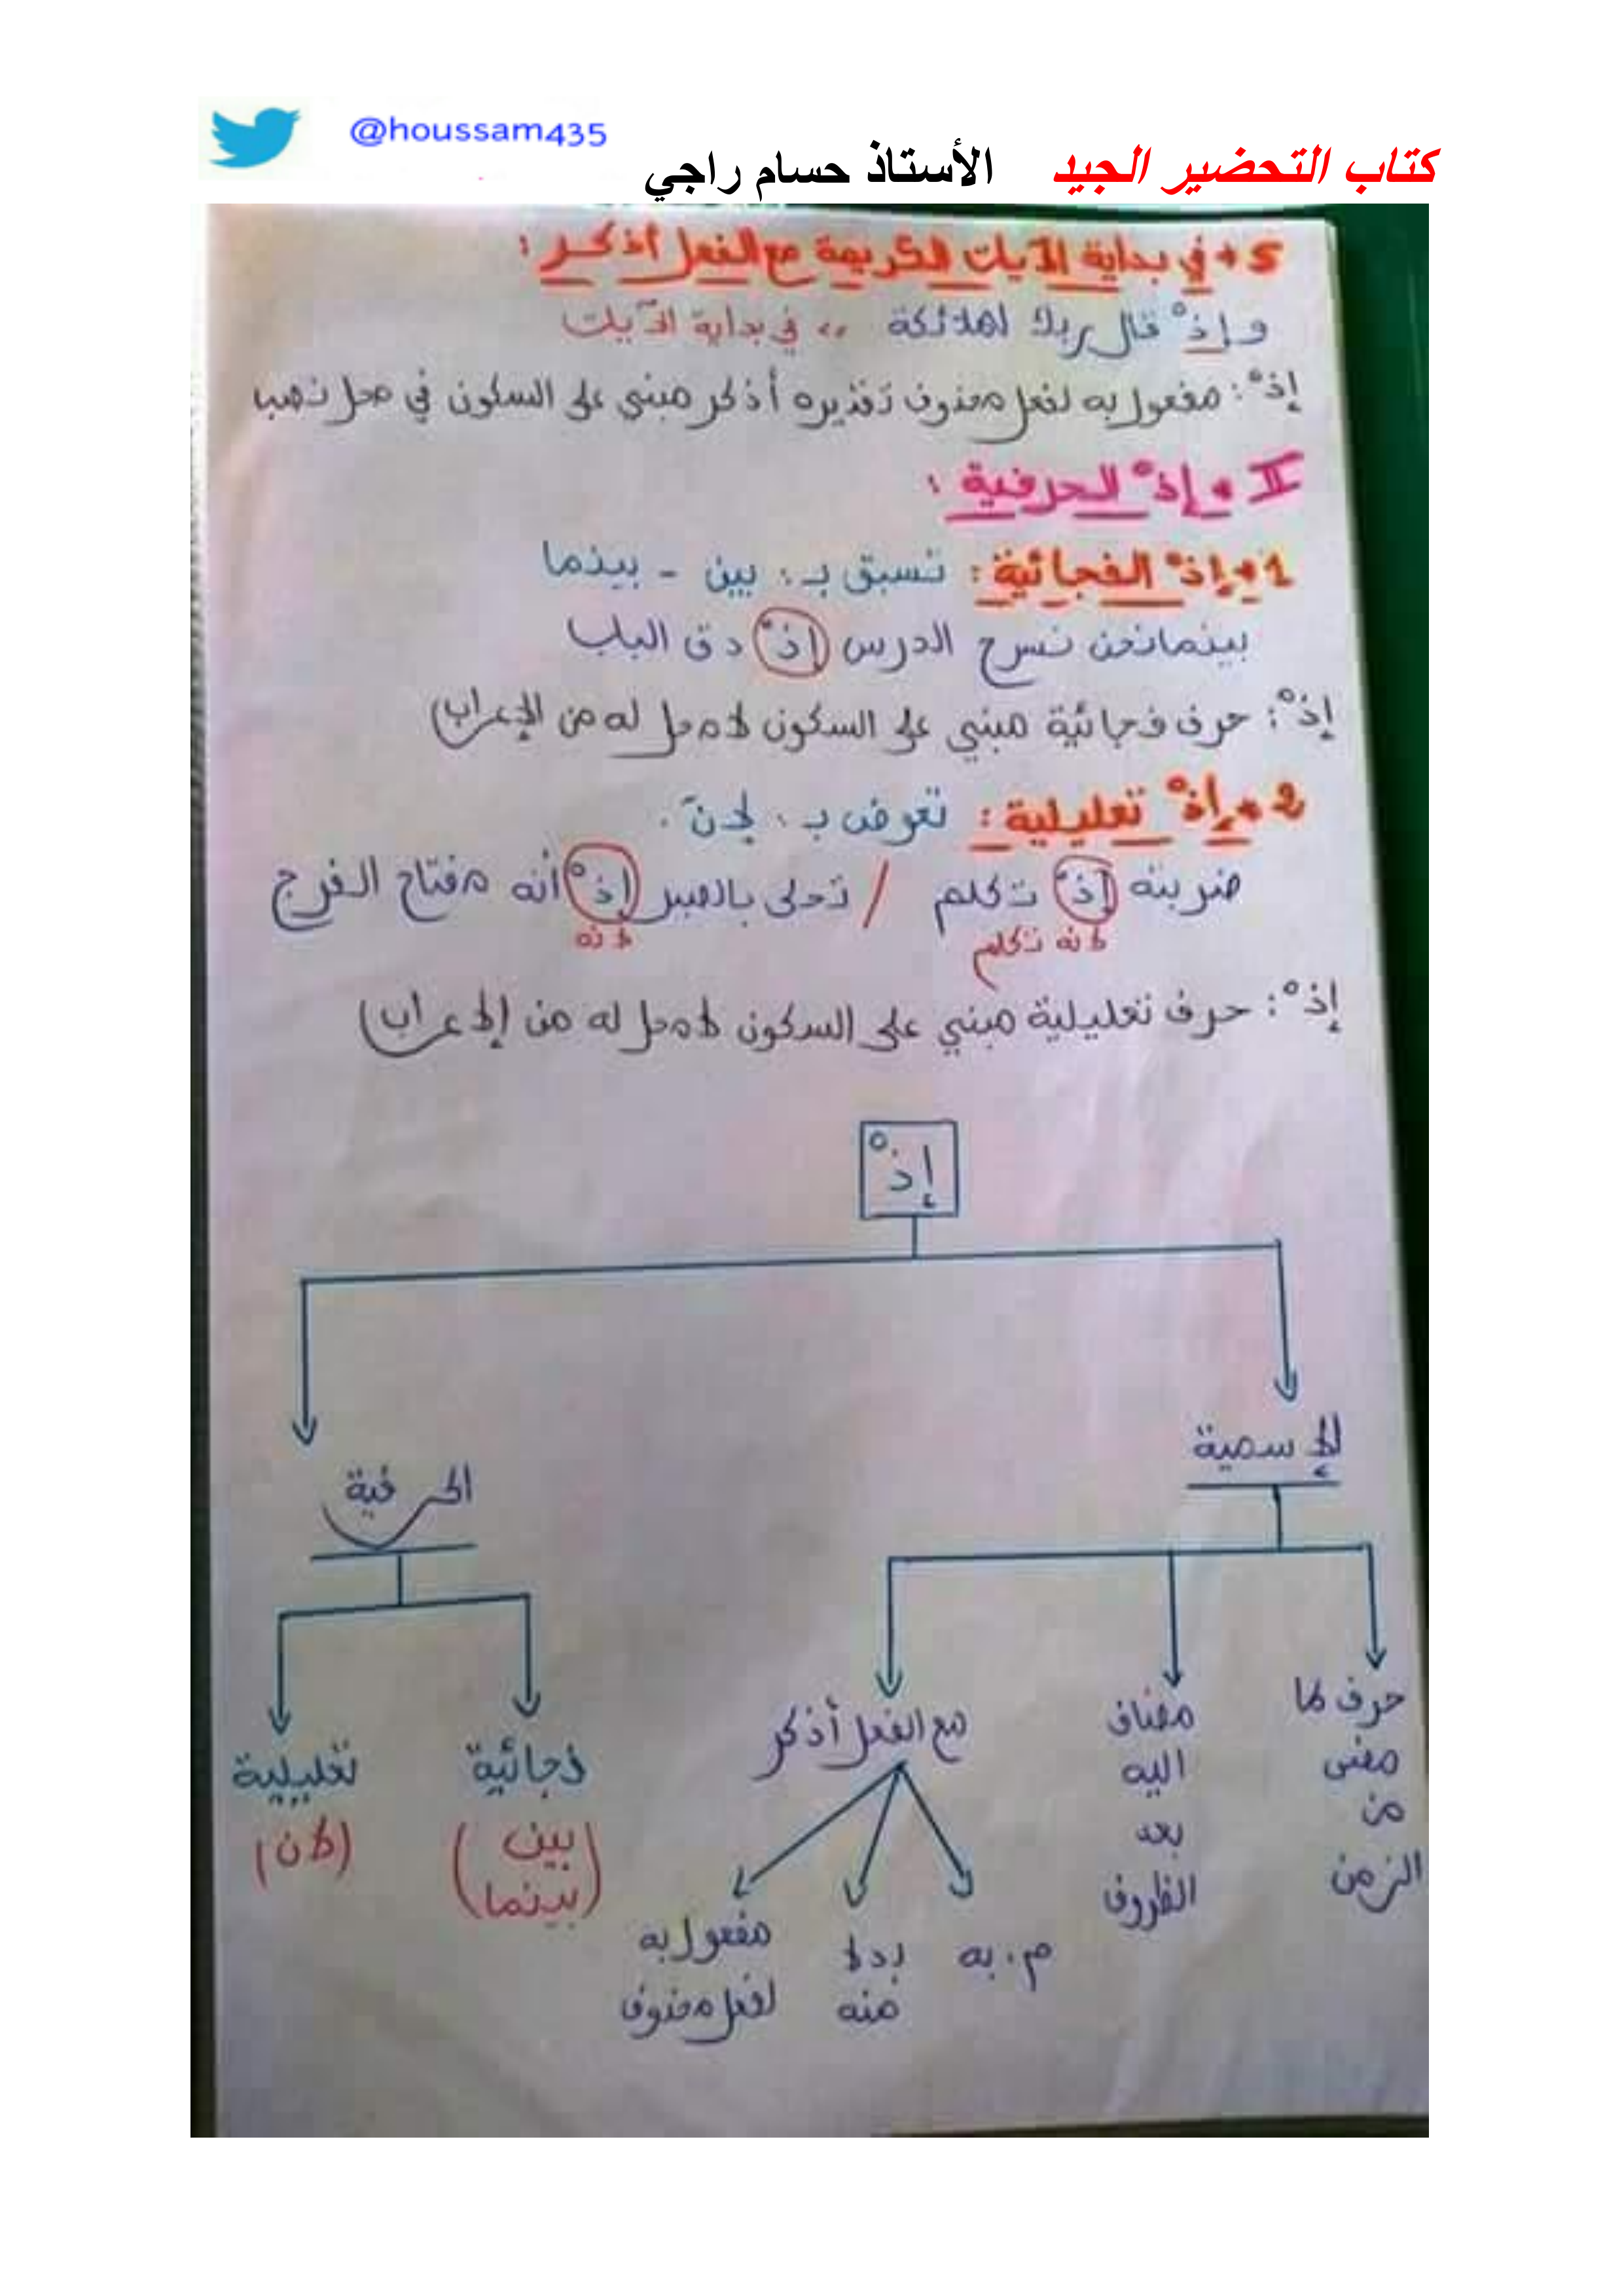 @houssam435
كتاب التحضير الجيد الأستاذ حسام راجي
5• في بداية الآيات الكريمة مع الفعل أذكر :
وإذْ قال ربك لملائكة ،، في بداية الآيات
إذْ : مفعول به لفعل محذوف تقديره أذكر مبني على السكون في محل نصب
II • إذْ الحرفية :
1• إذْ الفجائية : تسبق بـ : بين - بينما
بينما نحن نسرح الدرس إذْ دق الباب
إذْ : حرف فجائية مبني على السكون لا محل له من الإعراب)
2• إذْ تعليلية : تعوض بـ : لأنّ .
ضربته إذْ تكلم / تحلى بالصبر إذْ أنه مفتاح الفرج
لأنه تكلم لأنه
إذْ : حرف تعليلية مبني على السكون لا محل له من الإعراب)
إذْ
الإسمية
الحرفية
حرف لما مضى من الزمن
مضاف اليه بعد الظروف
مع الفعل أذكر
فجائية
(بين بينما)
تعليلية
(لأن)
م. به
بدلا منه
مفعول به لفعل محذوف